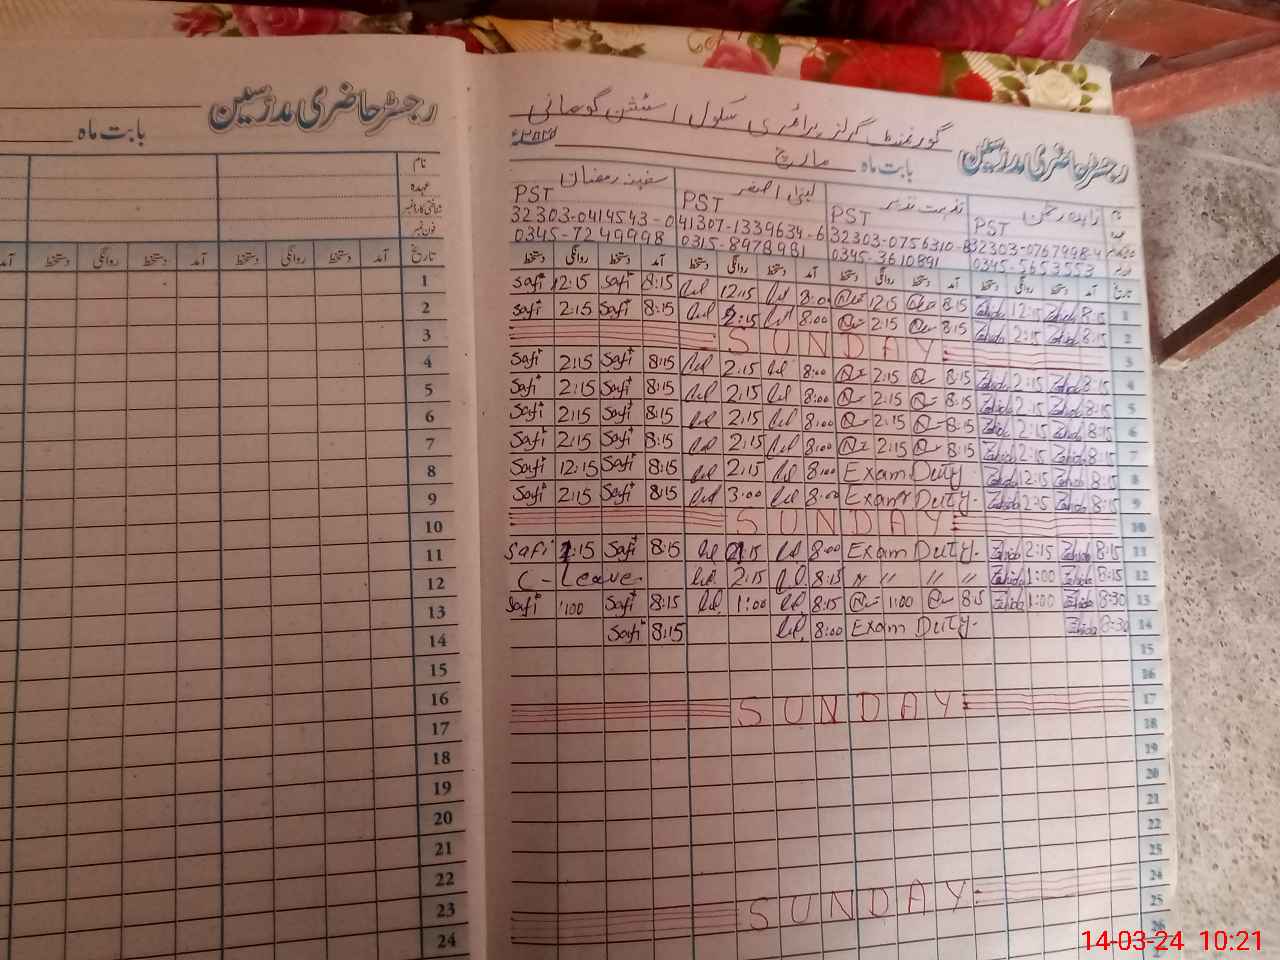 رجسٹر حاضری مدرسین
بابت ماہ
نام
عہدہ
شناختی کارڈ نمبر
فون نمبر
تاریخ آمد دستخط روانگی دستخط آمد دستخط روانگی دستخط آمد
1
2
3
4
5
6
7
8
9
10
11
12
13
14
15
16
17
18
19
20
21
22
23
24
گورنمنٹ گرلز پرائمری سکول اسٹیشن گومانی
رجسٹر حاضری مدرسین بابت ماہ مارچ
نام زاہدہ رحمن لبنیٰ اصغر سفینہ رمضان
PST PST PST PST
32303-0414543-0 41307-1339634-6 32303-0756310-8 32303-0767998-4
0345-7249998 0315-8978981 0345-3610891 0345-5653553
تاریخ آمد دستخط روانگی دستخط آمد دستخط روانگی دستخط آمد دستخط روانگی دستخط آمد دستخط روانگی دستخط
Safi 12:15 Safi 8:15 12:15 8:00 12:15 8:15 Zahida 12:15 Zahida 8:15 1
Safi 2:15 Safi 8:15 2:15 8:00 2:15 8:15 Zahida 2:15 Zahida 8:15 2
SUNDAY 3
Safi 2:15 Safi 8:15 2:15 8:00 2:15 8:15 Zahida 2:15 Zahida 8:15 4
Safi 2:15 Safi 8:15 2:15 8:00 2:15 8:15 Zahida 2:15 Zahida 8:15 5
Safi 2:15 Safi 8:15 2:15 8:00 2:15 8:15 Zahida 2:15 Zahida 8:15 6
Safi 2:15 Safi 8:15 2:15 8:00 2:15 8:15 Zahida 2:15 Zahida 8:15 7
Safi 12:15 Safi 8:15 2:15 8:00 Exam Duty Zahida 12:15 Zahida 8:15 8
Safi 2:15 Safi 8:15 3:00 8:00 Exam Duty- Zahida 2:15 Zahida 8:15 9
SUNDAY 10
Safi 2:15 Safi 8:15 2:15 8:00 Exam Duty- Zahida 2:15 Zahida 8:15 11
C-Leave 2:15 8:15 " " " " Zahida 1:00 Zahida 8:15 12
Safi 1:00 Safi 8:15 1:00 8:15 1:00 8:15 Zahida 1:00 Zahida 8:30 13
Safi 8:15 8:00 Exam Duty- Zahida 8:30 14
15
16
SUNDAY 17
18
19
20
21
22
23
SUNDAY 24
25
26
14-03-24 10:21